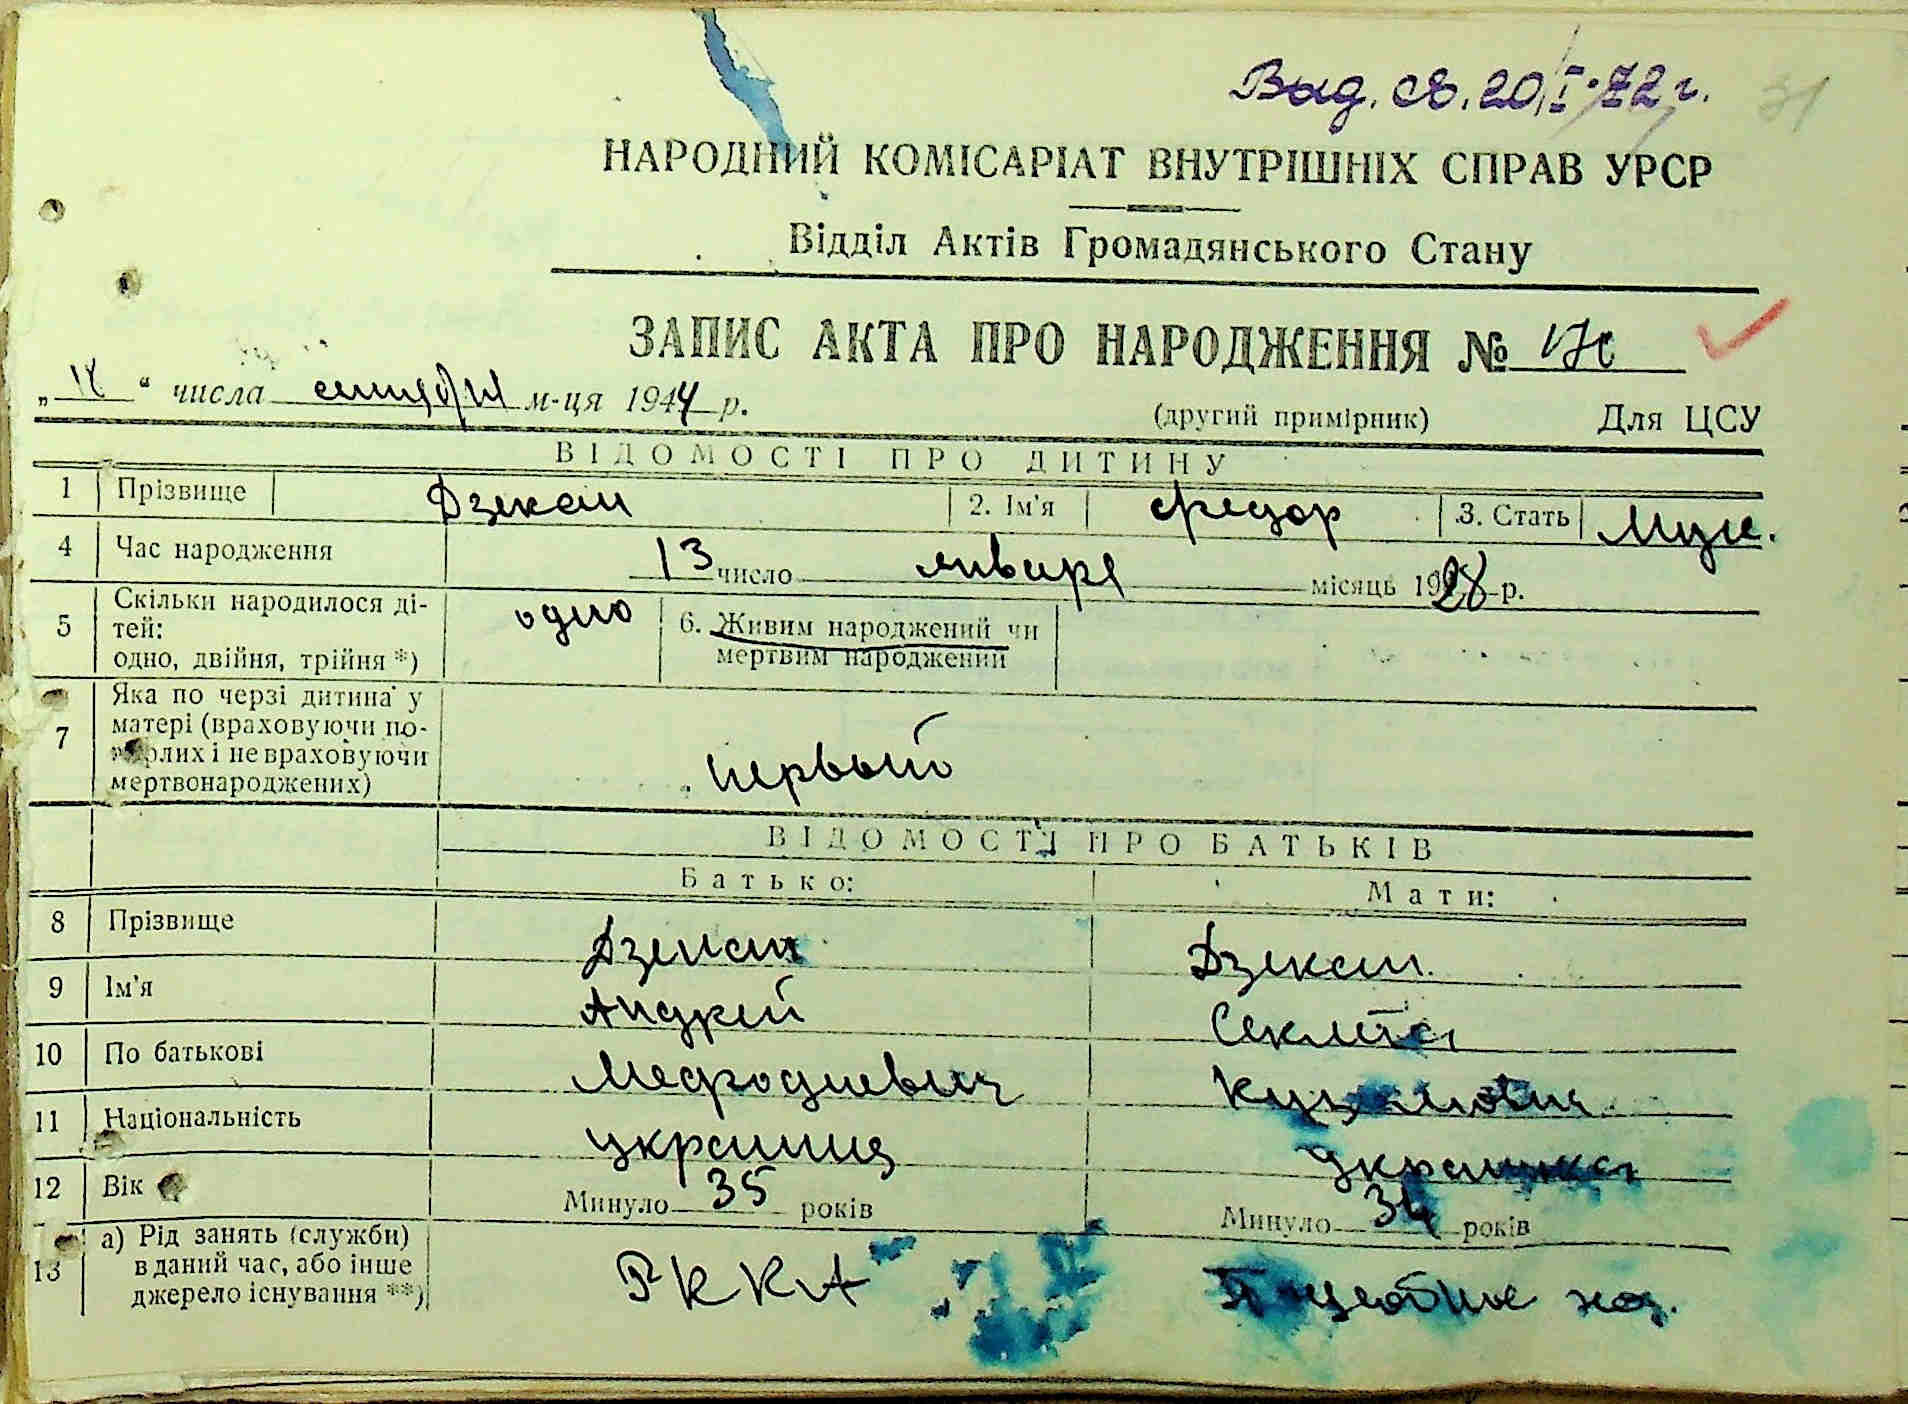 Выд. св. 20/I-72 г. 31
НАРОДНИЙ КОМІСАРІАТ ВНУТРІШНІХ СПРАВ УРСР
Відділ Актів Громадянського Стану
ЗАПИС АКТА ПРО НАРОДЖЕННЯ №
„ “ числа сентября м-ця 1944 р.
(другий примірник) Для ЦСУ
ВІДОМОСТІ ПРО ДИТИНУ
1 Прізвище Дзекан 2. Ім'я Федор 3. Стать Муж.
4 Час народження 13 число января місяць 1928 р.
5 Скільки народилося ді-
тей:
одно, двійня, трійня *) одно 6. Живим народжений чи
мертвим народжений
7 Яка по черзі дитина у
матері (враховуючи по-
мерлих і не враховуючи
мертвонароджених) первый
ВІДОМОСТІ ПРО БАТЬКІВ
Батько: Мати:
8 Прізвище Дзекан Дзекан
9 Ім'я Андрей Секлета
10 По батькові Мефодиевич Кузьмовна
11 Національність украинец украинка
12 Вік Минуло 35 років Минуло 34 років
13 а) Рід занять (служби)
в даний час, або інше
джерело існування **) РККА